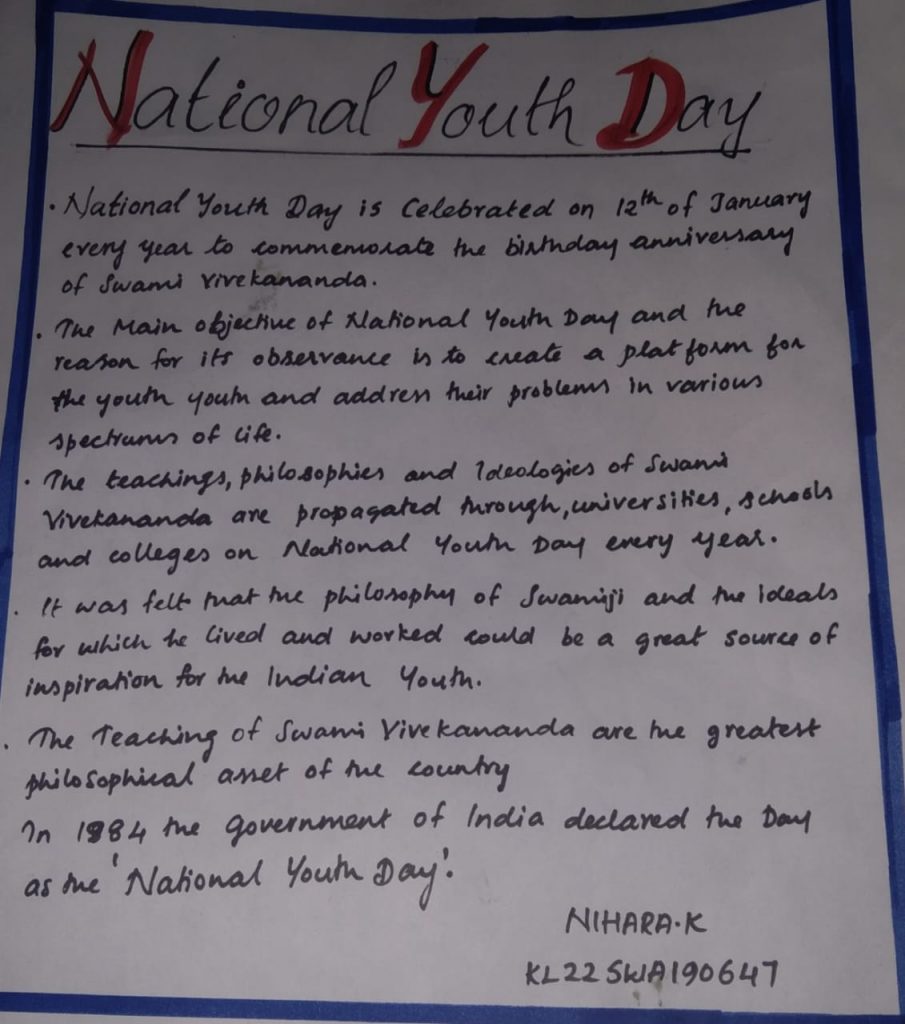 National Youth Day
· National Youth Day is Celebrated on 12th of January
every year to commemorate the birthday anniversary
of Swami Vivekananda.
· The Main objective of National Youth Day and the
reason for its observance is to create a platform for
the youth youth and address their problems in various
spectrums of life.
· The teachings, philosophies and Ideologies of Swami
Vivekananda are propagated through, universities, schools
and colleges on National Youth Day every year.
· It was felt that the philosophy of Swamiji and the ideals
for which he lived and worked could be a great source of
inspiration for the Indian Youth.
· The Teaching of Swami Vivekananda are the greatest
philosophical asset of the country
In 1984 the government of India declared the Day
as the 'National Youth Day'.
NIHARA.K
KL22SWA190647